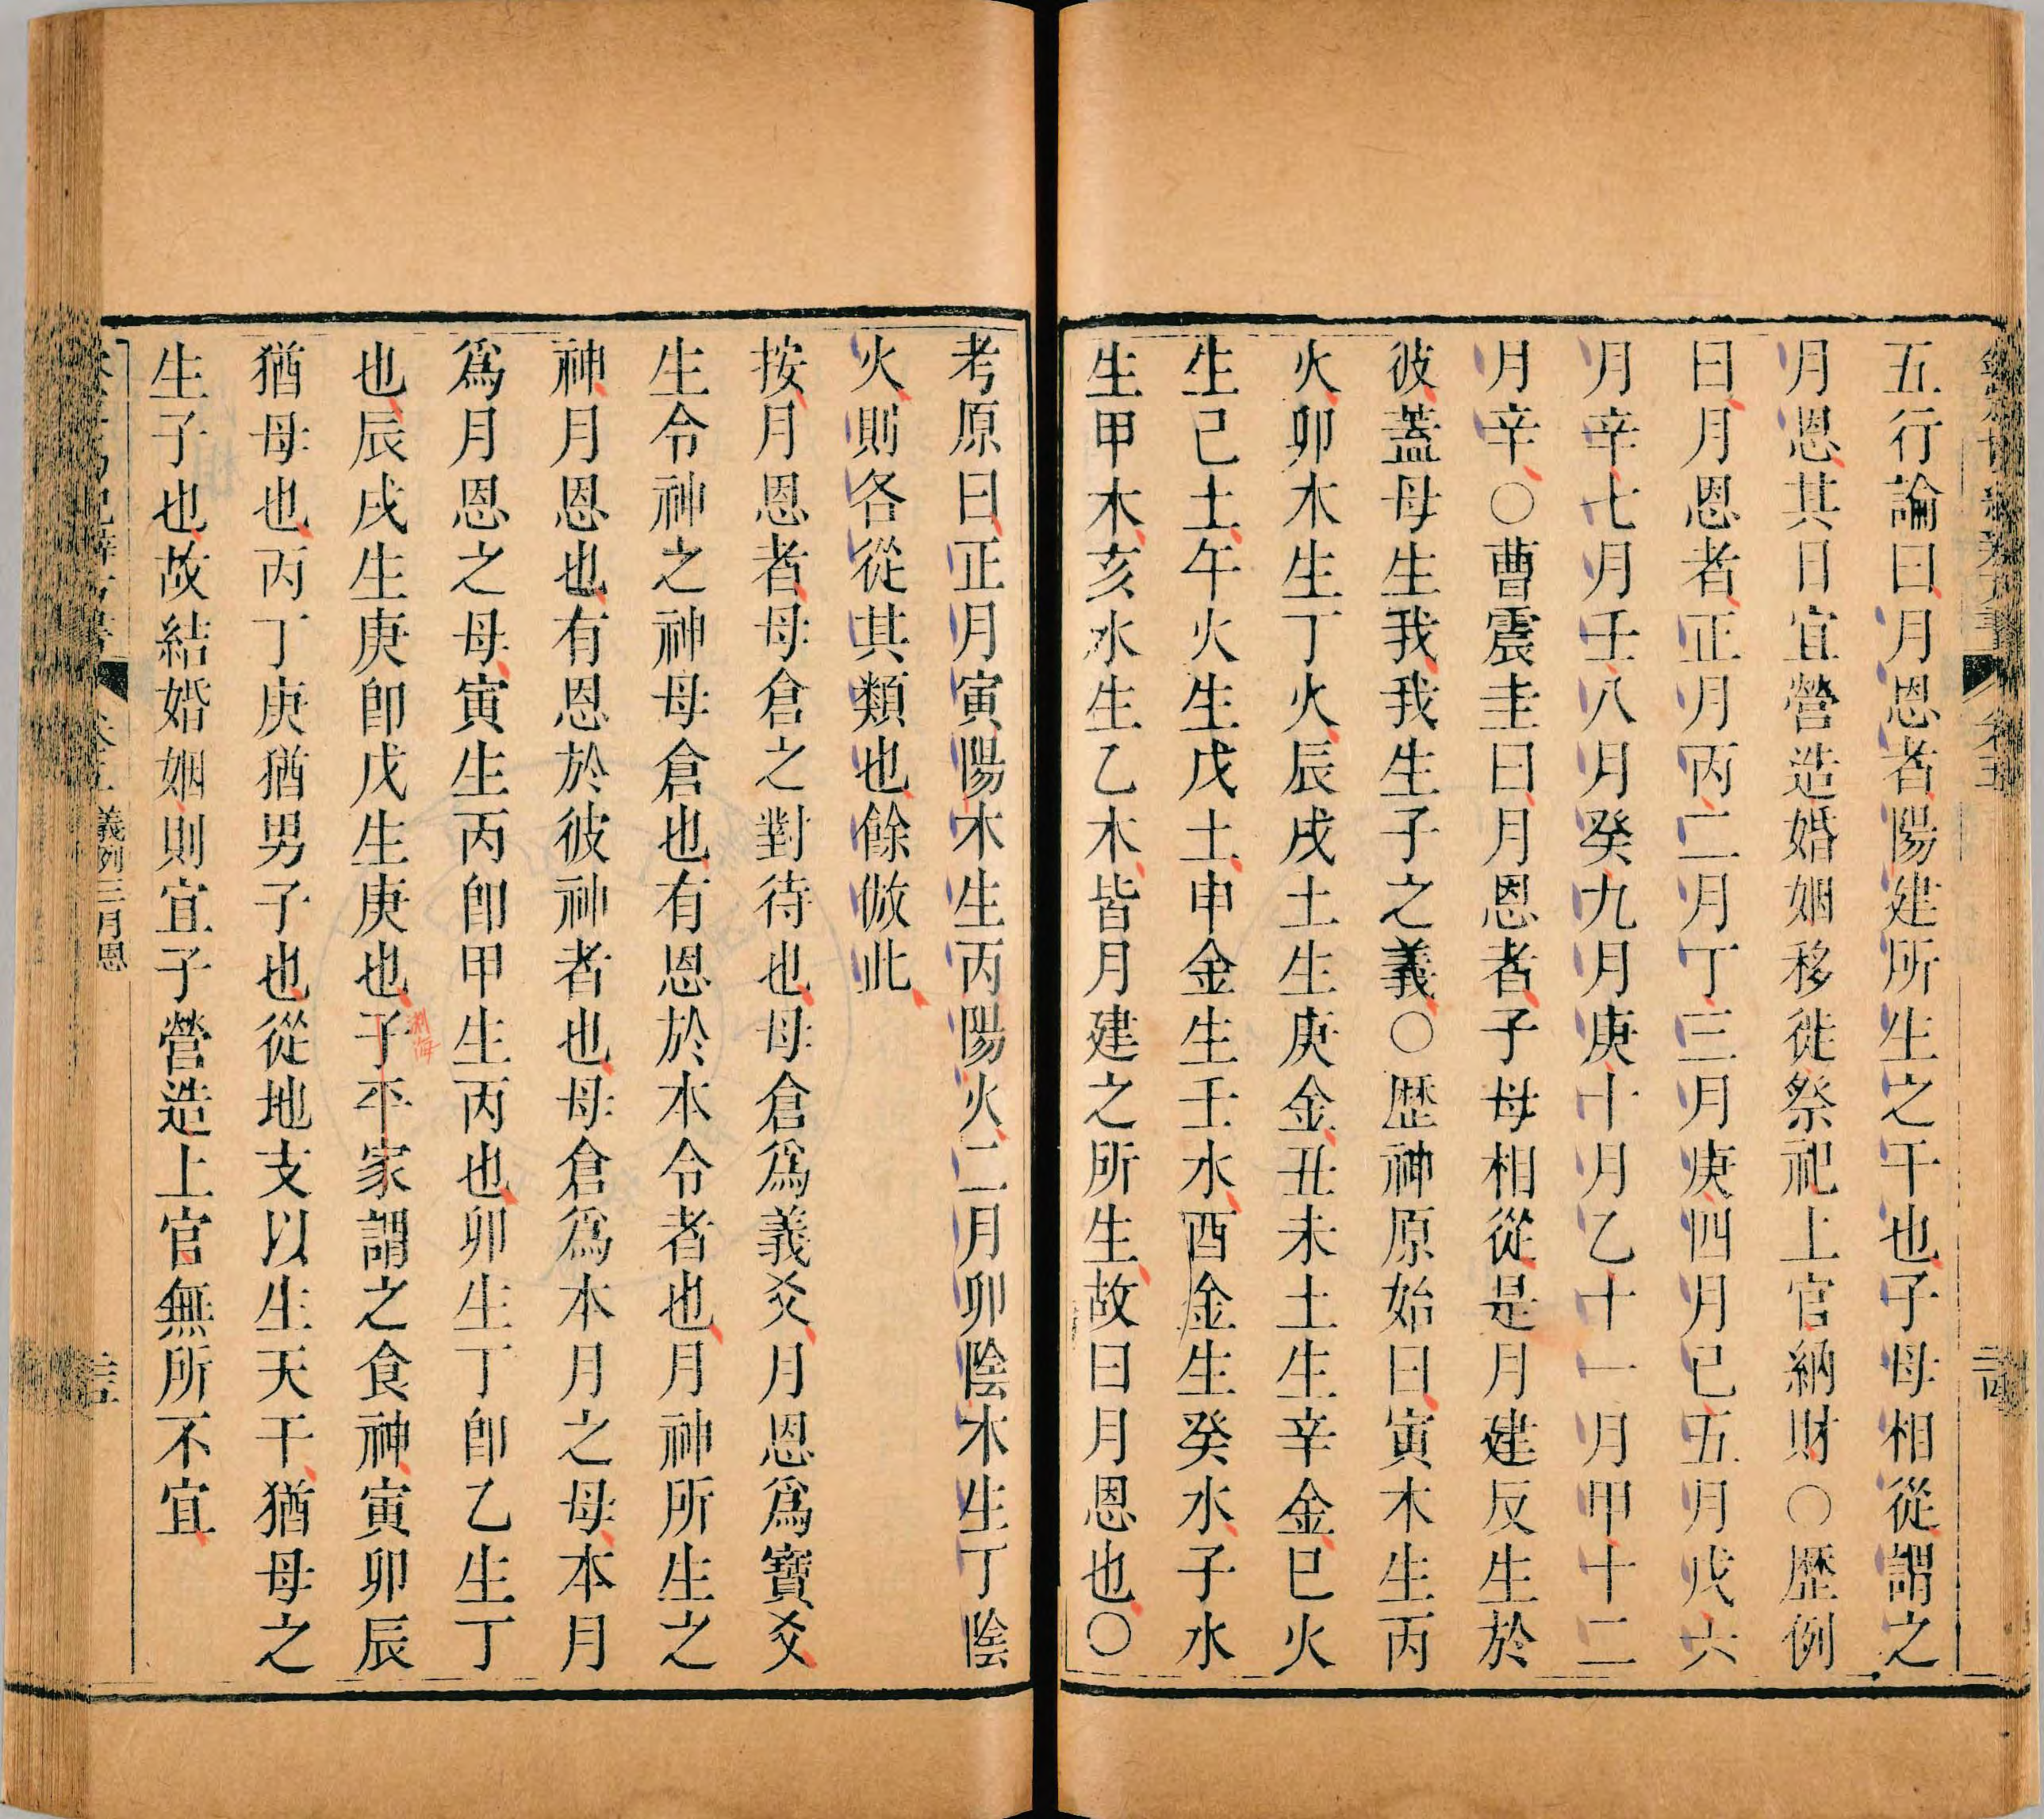 五行論曰月恩者陽建所生之干也子母相從謂之
月恩其日宜營造婚姻移徙祭祀上官納財○歷例
曰月恩者正月丙二月丁三月庚四月己五月戊六
月辛七月壬八月癸九月庚十月乙十一月甲十二
月辛○曹震圭曰月恩者子母相從是月建反生於
彼蓋母生我我生子之義○歷神原始曰寅木生丙
火卯木生丁火辰戌土生庚金丑未土生辛金巳火
生己土午火生戊土申金生壬水酉金生癸水子水
生甲木亥水生乙木皆月建之所生故曰月恩也○
考原曰正月寅陽木生丙陽火二月卯陰木生丁陰
火則各從其類也餘倣此
按月恩者母倉之對待也母倉爲義爻月恩爲寶爻
生令神之神母倉也有恩於本令者也月神所生之
神月恩也有恩於彼神者也母倉爲本月之母本月
爲月恩之母寅生丙卽甲生丙也卯生丁卽乙生丁
也辰戌生庚卽戊生庚也子平家謂之食神寅卯辰
淵海
猶母也丙丁庚猶男子也從地支以生天干猶母之
生子也故結婚姻則宜子營造上官無所不宜
義例三月恩